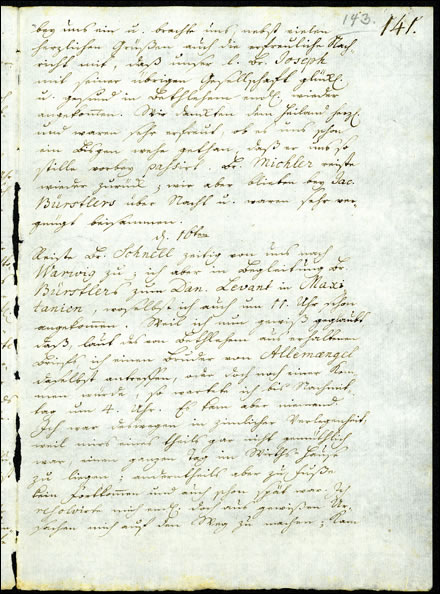 143. 141.
bey uns ein u. brachte uns, nebst vielen
herzlichen Grüßen auch die erfreuliche Nach-
richt mit, daß unser l. Br. Joseph
mit seiner übrigen Gesellschaft glükl.
u. gesund in Bethlehem endl. wieder
angekommen. Wir dankten dem Heiland herzl.
und waren sehr erfreut, ob es uns schon
ein bißgen wehe gethan, daß er uns so
stille vorbey passirt. Br. Michler reiste
wieder zurük; wir aber blieben bey Jac.
Bürstlers über Nacht u. waren sehr ver-
gnügt beysammen.
d. 10ten
Reiste Br. Schnell zeitig von uns nach
Warwig zu; ich aber in Begleitung Br.
Bürstlers zum Dan. Levant in Maxi-
tanien, woselbst ich auch um 11. Uhr schon
angekommen. Weil ich nun gewiß geglaubt
daß, laut des von Bethlehem aus erhaltenen
Briefs, ich einen Bruder von Allemängel
daselbst antreffen, oder doch noch einer kom-
men würde, so wartete ich bis Nachmit-
tag um 4. Uhr. Es kam aber niemand.
Ich war deswegen in ziemlicher Verlegenheit,
weil mirs eines theils gar nicht gemüthlich
war, einen ganzen Tag im Wirths Hause
zu liegen; anderntheils aber zu Fuße
kein Fortkommen und auch schon spät war. Ich
resolvirte mich endl. doch aus gewißen Ur-
sachen mich auf den Weg zu machen; kam